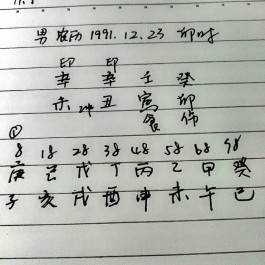 男 农历 1991.12.23 卯时
印 印
辛 辛 壬 癸
未 冲 丑 寅 卯
食 伤
①
8 18 28 38 48 58 68 98
庚 己 戊 丁 丙 乙 甲 癸
子 亥 戌 酉 申 未 午 巳